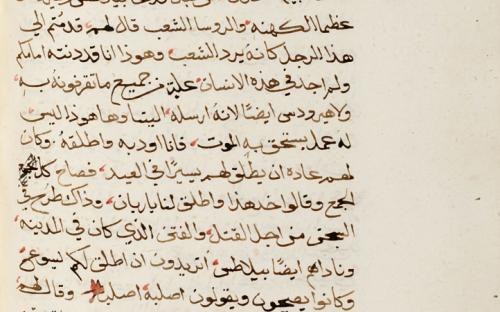 عظما الكهنه والروسا الشعب قال لهم قدمتم الي
هذا الرجل كانه يرد الشعب وهوذا انا قد دنته امامكم
ولم اجد في هذه الانسان عله من جميع ما تقرفونه به
ولا هيرودس ايضا لانه ارسله الينا وها هوذا ليس
له عمل يستحق به الموت فانا اودبه واطلقه وكان
لهم عاده ان يطلق لهم يسيرا في العيد فصاح كل
الجمع وقالوا خد هذا واطلق لنا باربان وذاك طرح في
السجن من اجل القتل والفتن الذي كان في المدينه
وناداهم ايضا بيلاطس اتريدون ان اطلق لكم ليسوع
وكانوا يصيحون ويقولون اصلبه اصلبه وقال لهم